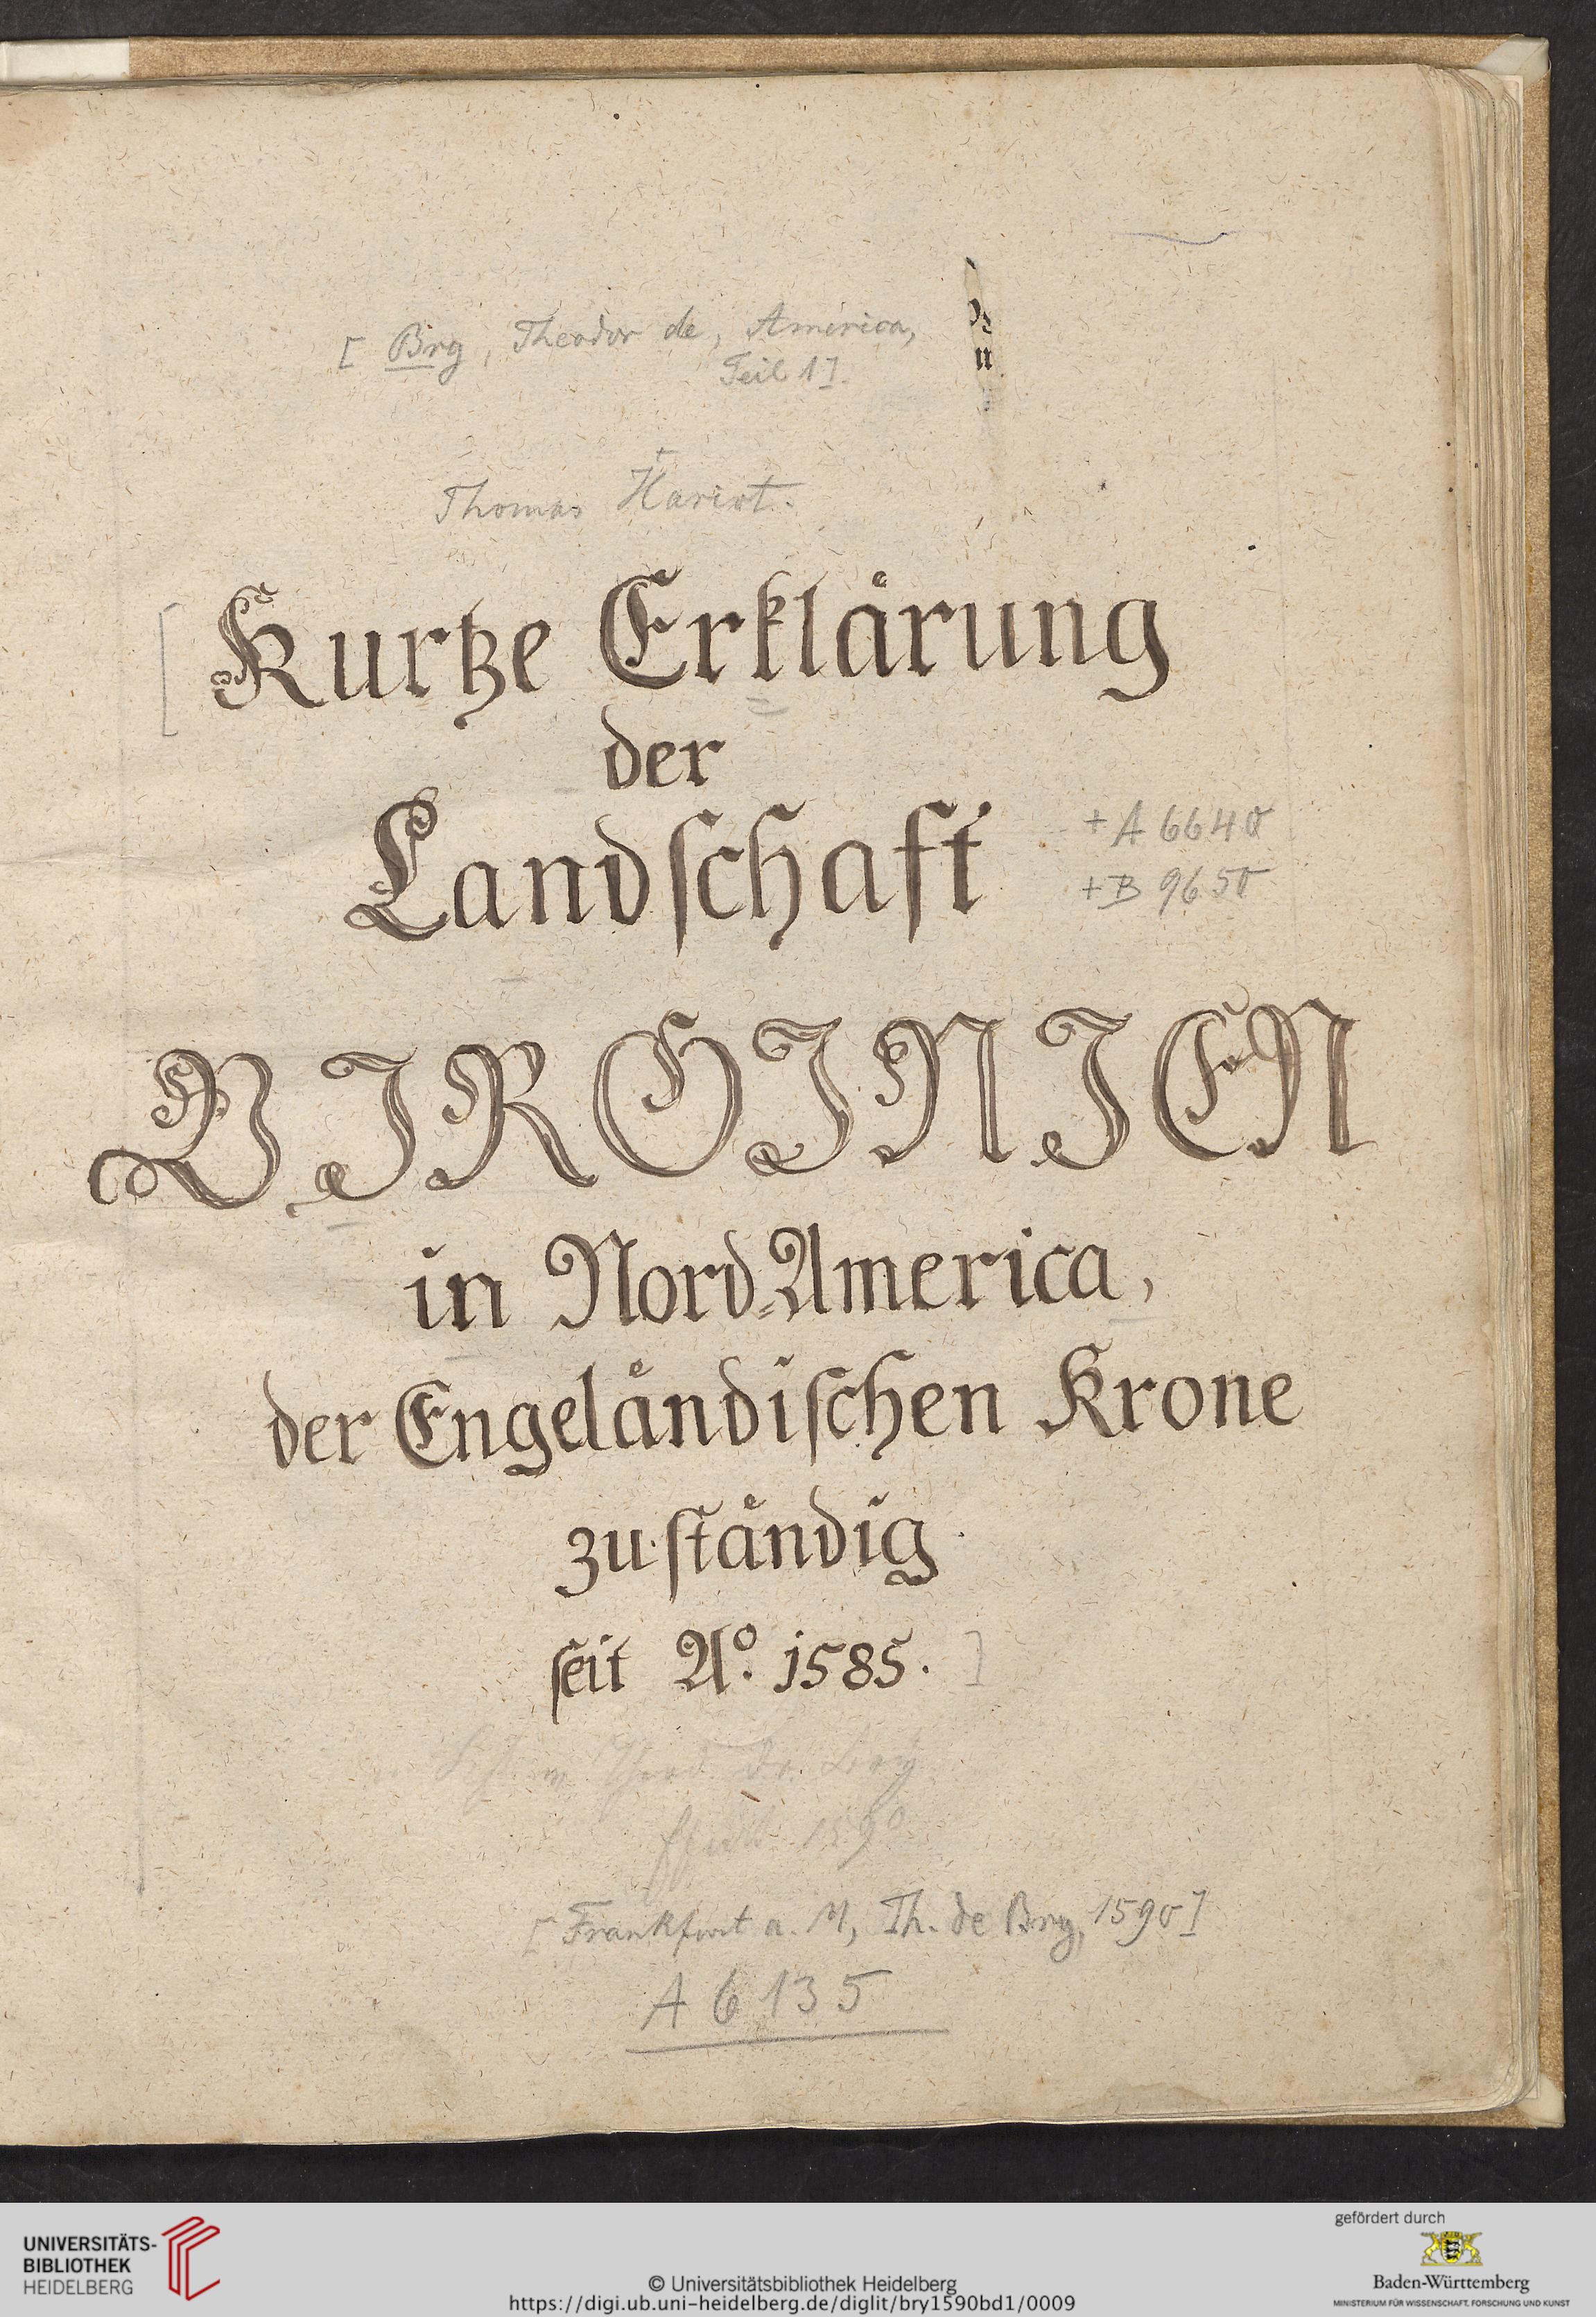 [ Bry, Theodor de, America,
Teil 1].
Thomas Hariot.
Kurtze Erklårung
der
Landſchaft
+ A 6640
+ B 9650
VIRGINIEN
in Nord⸗America,
der Engelåndiſchen Krone
zuſtåndig
ſeit Aº. 1585. ]
1590
[ Frankfurt a. M, Th. de Bry, 1590]
A 6135
UNIVERSITÄTS-
BIBLIOTHEK
HEIDELBERG
© Universitätsbibliothek Heidelberg
https://digi.ub.uni-heidelberg.de/diglit/bry1590bd1/0009
gefördert durch
Baden-Württemberg
MINISTERIUM FÜR WISSENSCHAFT, FORSCHUNG UND KUNST